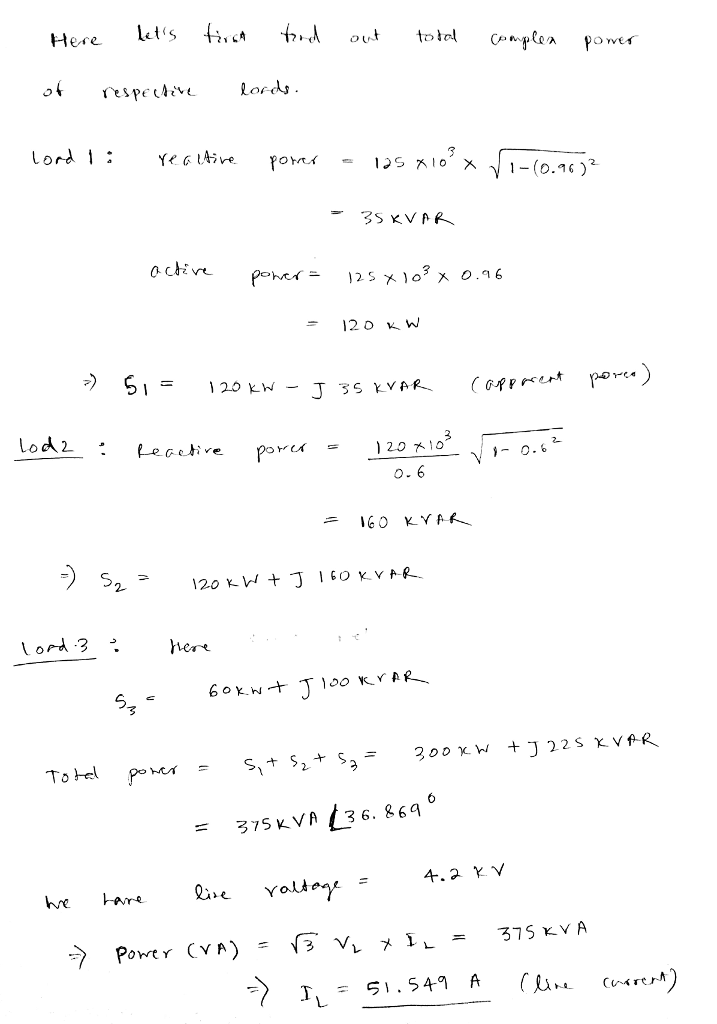 Here let's first find out total complex power
of respective loads.
Load 1 : reactive power = 125 × 10³ × √1-(0.96)²
= 35 KVAR
active power = 125 × 10³ × 0.96
= 120 KW
⇒ S1 = 120 KW - J 35 KVAR (apparent power)
Lod2 : Reactive power = 120 × 10³ / 0.6 √1-0.6²
= 160 KVAR
⇒ S2 = 120 KW + J 160 KVAR
Load 3 : Here
S3 = 60KW + J100 KVAR
Total power = S1 + S2 + S3 = 300 KW + J 225 KVAR
= 375 KVA ∠36.869°
We have line voltage = 4.2 KV
⇒ Power (VA) = √3 VL × IL = 375 KVA
⇒ IL = 51.549 A (line current)